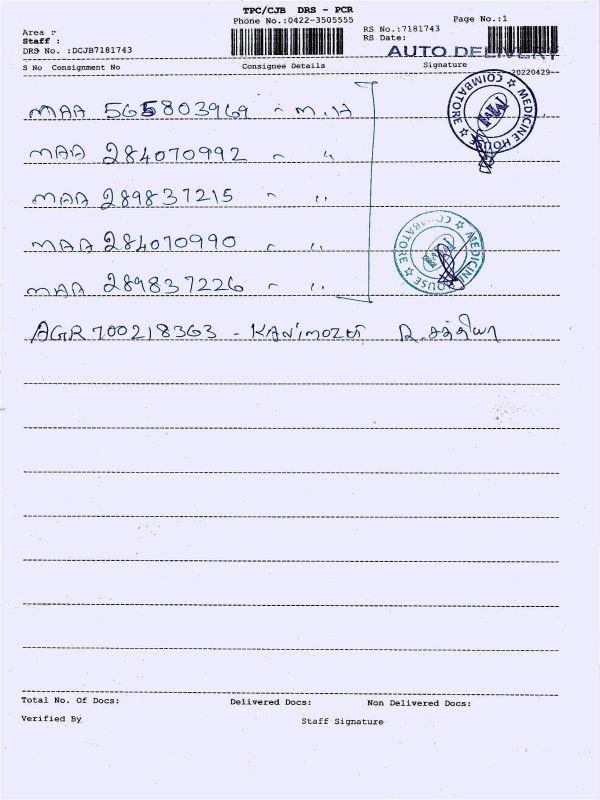 TPC/CJB DRS - PCR
Phone No.:0422-3505555 Page No.:1
Area :
Staff :
DRS No. :DCJB7181743
RS No.:7181743
RS Date:
AUTO DELIVERY
S No Consignment No Consignee Details Signature
20220429--
MAA 565803969 " M.H
MAA 284070992 " "
MAA 289837215 " "
MAA 284070990 " "
MAA 289837226 " "
MEDICINE HOUSE ☆ COIMBATORE ☆
MEDICINE HOUSE ☆ COIMBATORE ☆
AGR 700218363 - KANIMOZHI R. சத்தியா
Total No. Of Docs: Delivered Docs: Non Delivered Docs:
Verified By Staff Signature